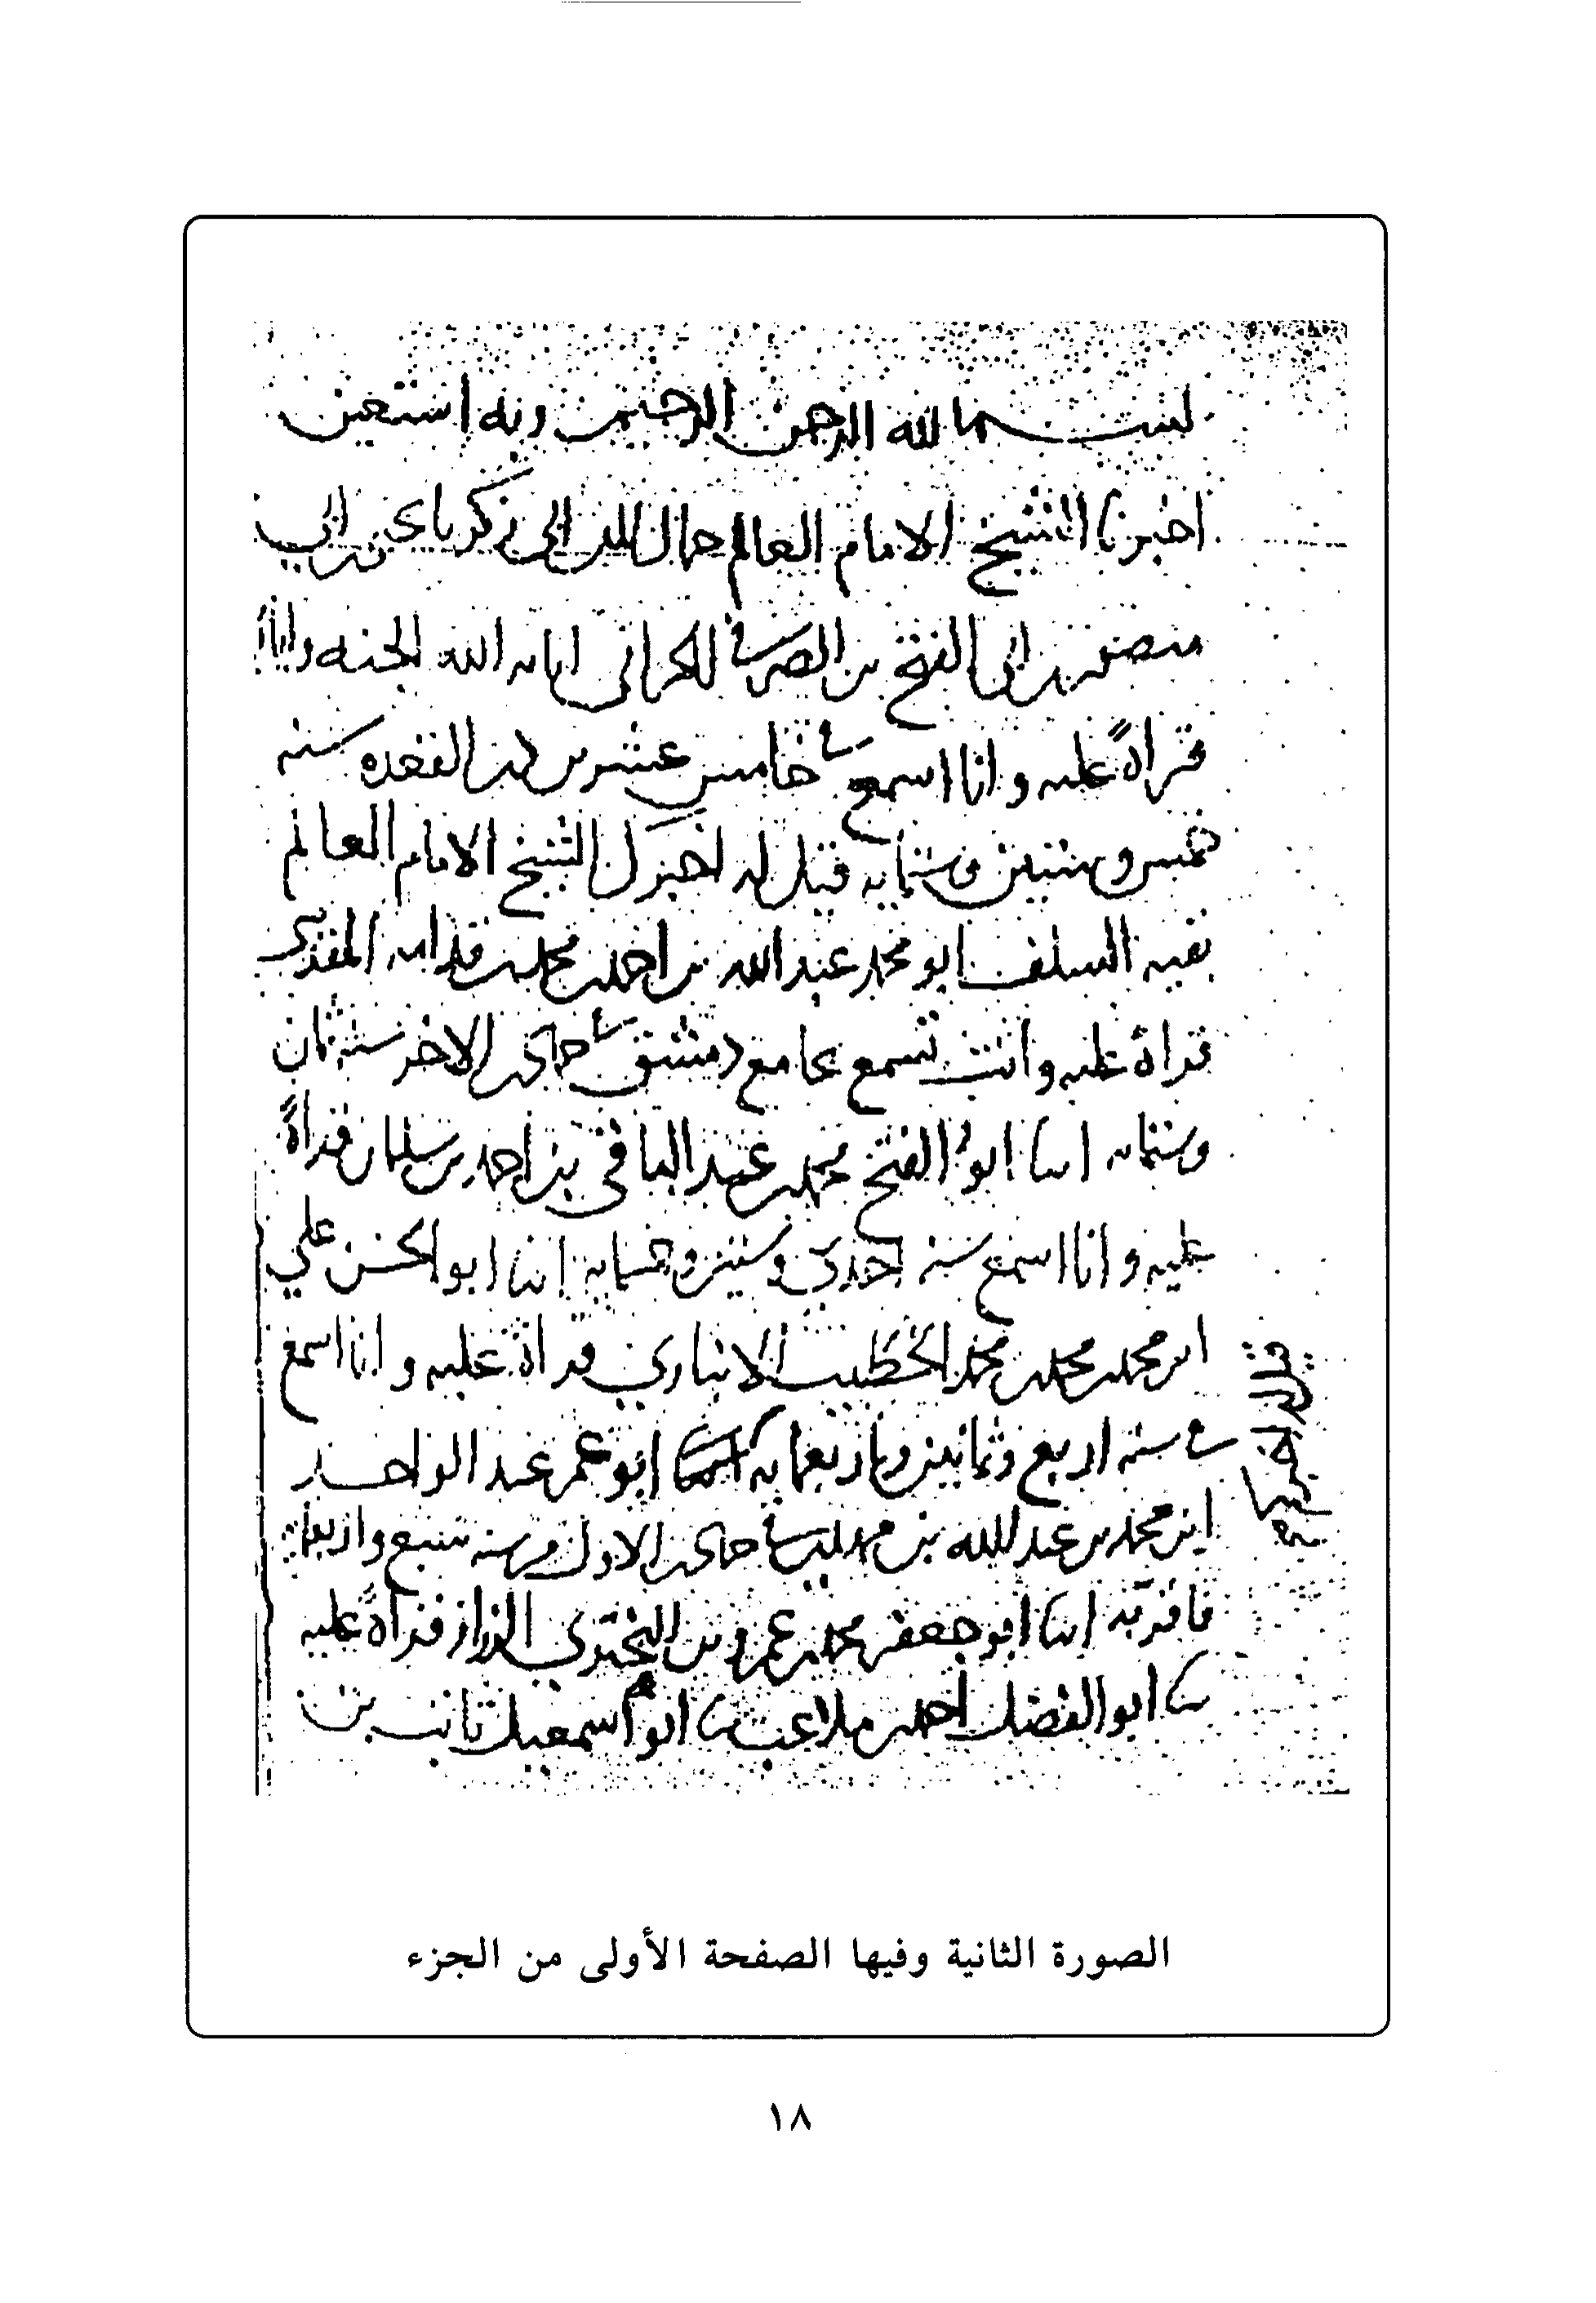 بسم الله الرحمن الرحيم وبه استعين
اخبرنا الشيخ الامام العالم جمال الدين ابي زكريا يحيى بن ابي
منصور بن ابي الفتح بن الصيرفي الحراني اثابه الله الجنه وايانا
قراةً عليه وانا اسمع في خامس عشرين ذي القعده سنه
خمس وستين وستمايه قيل له اخبرك الشيخ الامام العالم
بقيه السلف ابو محمد عبد الله بن احمد بن محمد بن قدامه المقدسي
قراة عليه وانت تسمع بجامع دمشق في جمادى الاخر سنه ثمان
وستمايه انبا ابو الفتح محمد بن عبد الباقي بن احمد بن سلمان قراةً
عليه وانا اسمع سنه احدى وستين وخمسمايه انبا ابو الحسن علي
ابن محمد بن محمد بن محمد الخطيب الانباري قراة عليه وانا اسمع
في سنه اربع وثمانين واربعمايه انبا ابو عمر عبد الواحد
ابن محمد بن عبد الله بن مهدي في جمادى الاول من سنه تسع واربعمايه
فاقر به انبا ابو جعفر محمد بن عمرو بن البختري الرزاز قراةً عليه
ثنا ابو الفضل احمد بن ملاعب ثنا ابو اسمعيل ثابت بن
الصورة الثانية وفيها الصفحة الأولى من الجزء
١٨